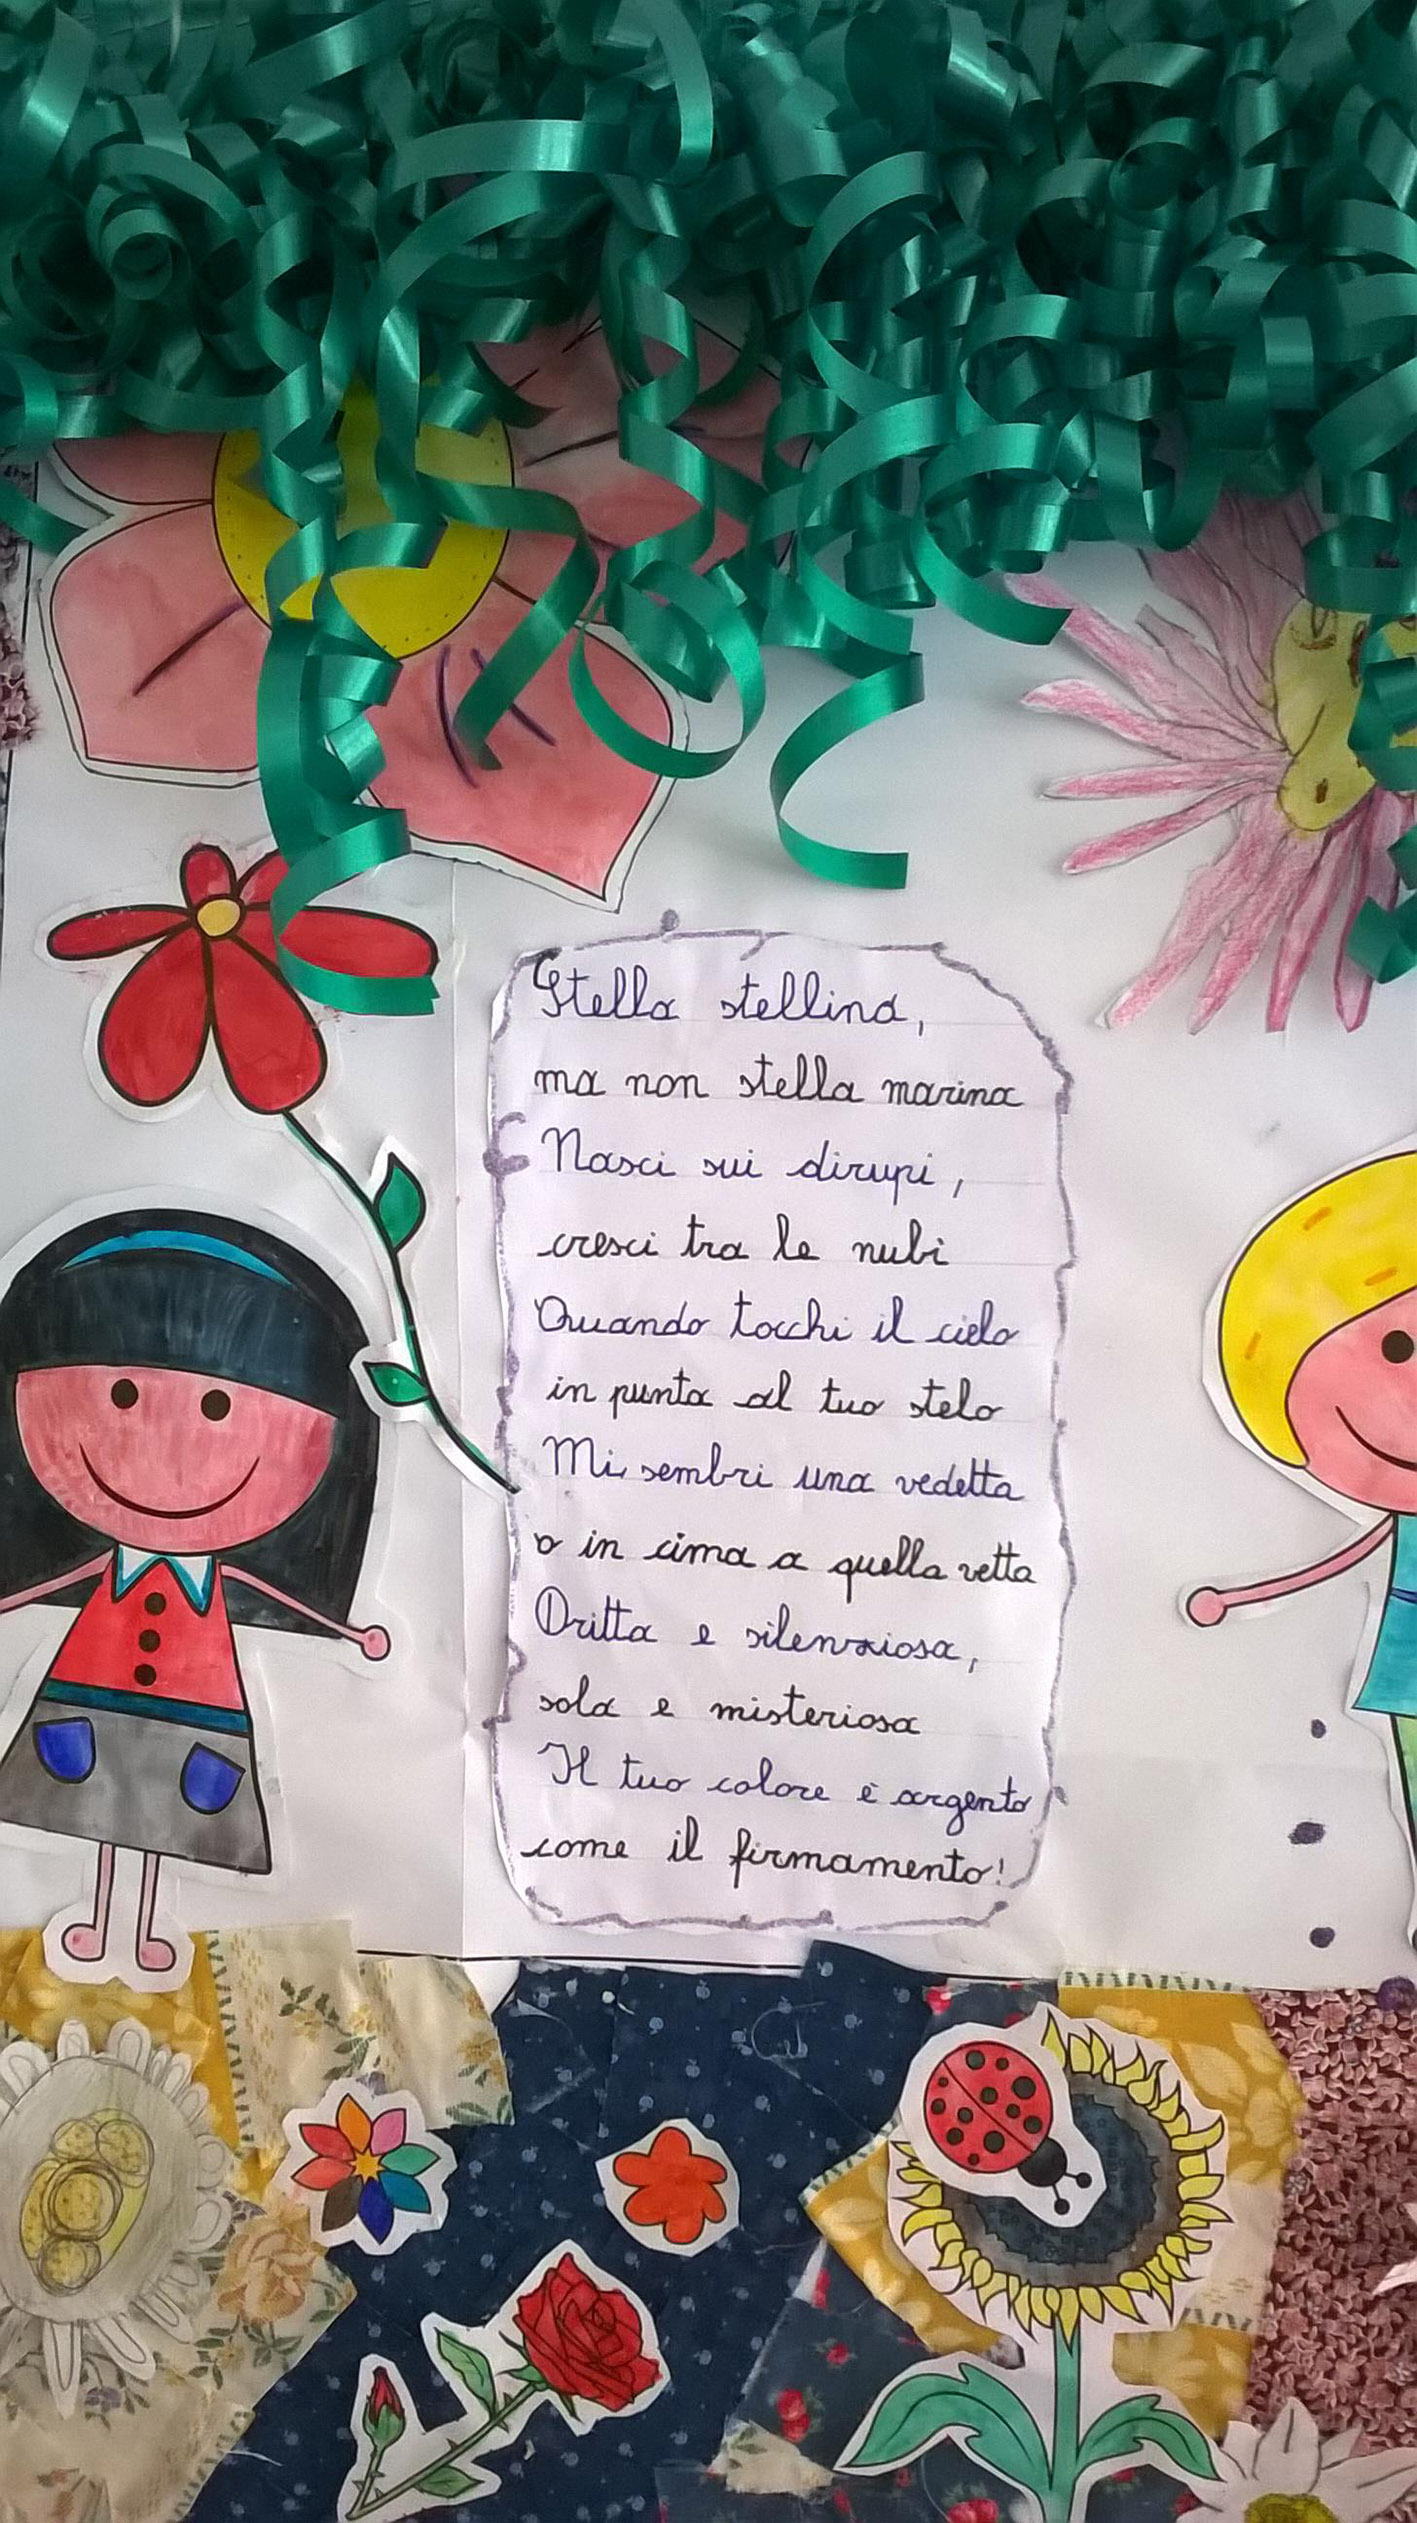 Stella stellina,
ma non stella marina
Nasci sui dirupi,
cresci tra le nubi
Quando tocchi il cielo
in punta al tuo stelo
Mi sembri una vedetta
o in cima a quella vetta
Dritta e silenziosa,
sola e misteriosa
Il tuo colore è argento
come il firmamento!